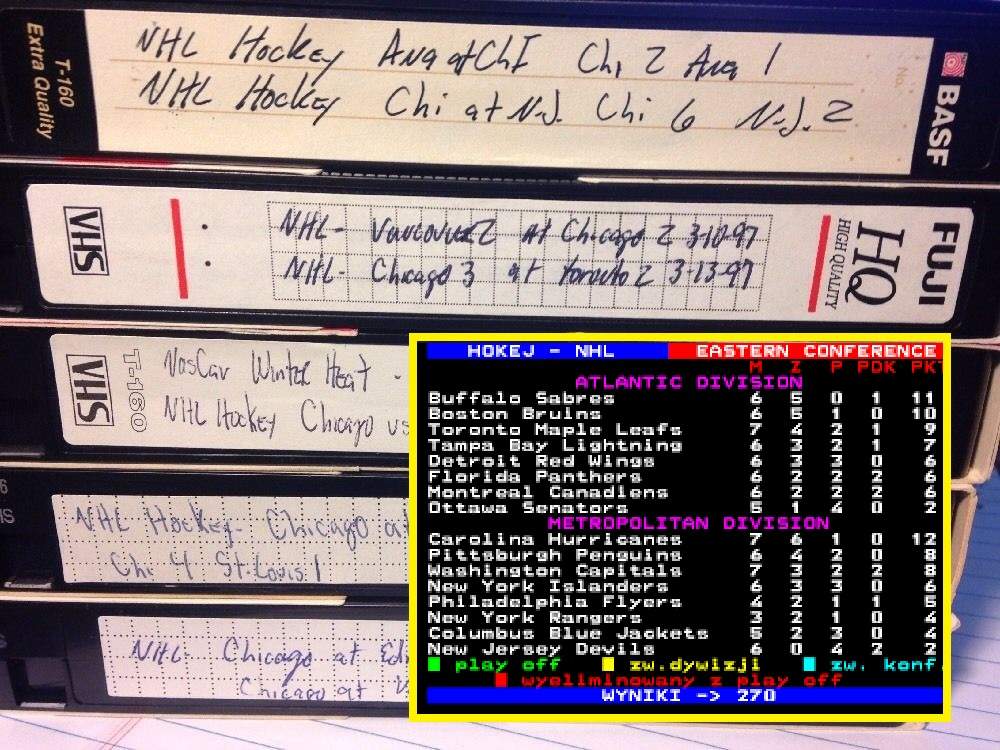 T-160
Extra Quality
NHL Hockey Ana at ChI Chi 2 Ana 1
NHL Hockey Chi at N.J. Chi 6 N.J. 2
No.
BASF
VHS
NHL- Vancouver 2 at Chicago 2 3-10-97
NHL- Chicago 3 at toronto 2 3-13-97
FUJI
HQ
HIGH QUALITY
VHS
T-160
NasCar Winter Heat -
NHL Hockey Chicago vs
NHL Hockey- Chicago at
Chi 4 St. Louis 1
NHL- Chicago at
Chicago at
HOKEJ - NHL EASTERN CONFERENCE
M Z P PDK PKT
ATLANTIC DIVISION
Buffalo Sabres 6 5 0 1 11
Boston Bruins 6 5 1 0 10
Toronto Maple Leafs 7 4 2 1 9
Tampa Bay Lightning 6 3 2 1 7
Detroit Red Wings 6 3 3 0 6
Florida Panthers 6 2 2 2 6
Montreal Canadiens 6 2 2 2 6
Ottawa Senators 5 1 4 0 2
METROPOLITAN DIVISION
Carolina Hurricanes 7 6 1 0 12
Pittsburgh Penguins 6 4 2 0 8
Washington Capitals 7 3 2 2 8
New York Islanders 6 3 3 0 6
Philadelphia Flyers 4 2 1 1 5
New York Rangers 3 2 1 0 4
Columbus Blue Jackets 5 2 3 0 4
New Jersey Devils 6 0 4 2 2
play off zw.dywizji zw. konf.
wyeliminowany z play off
WYNIKI -> 270